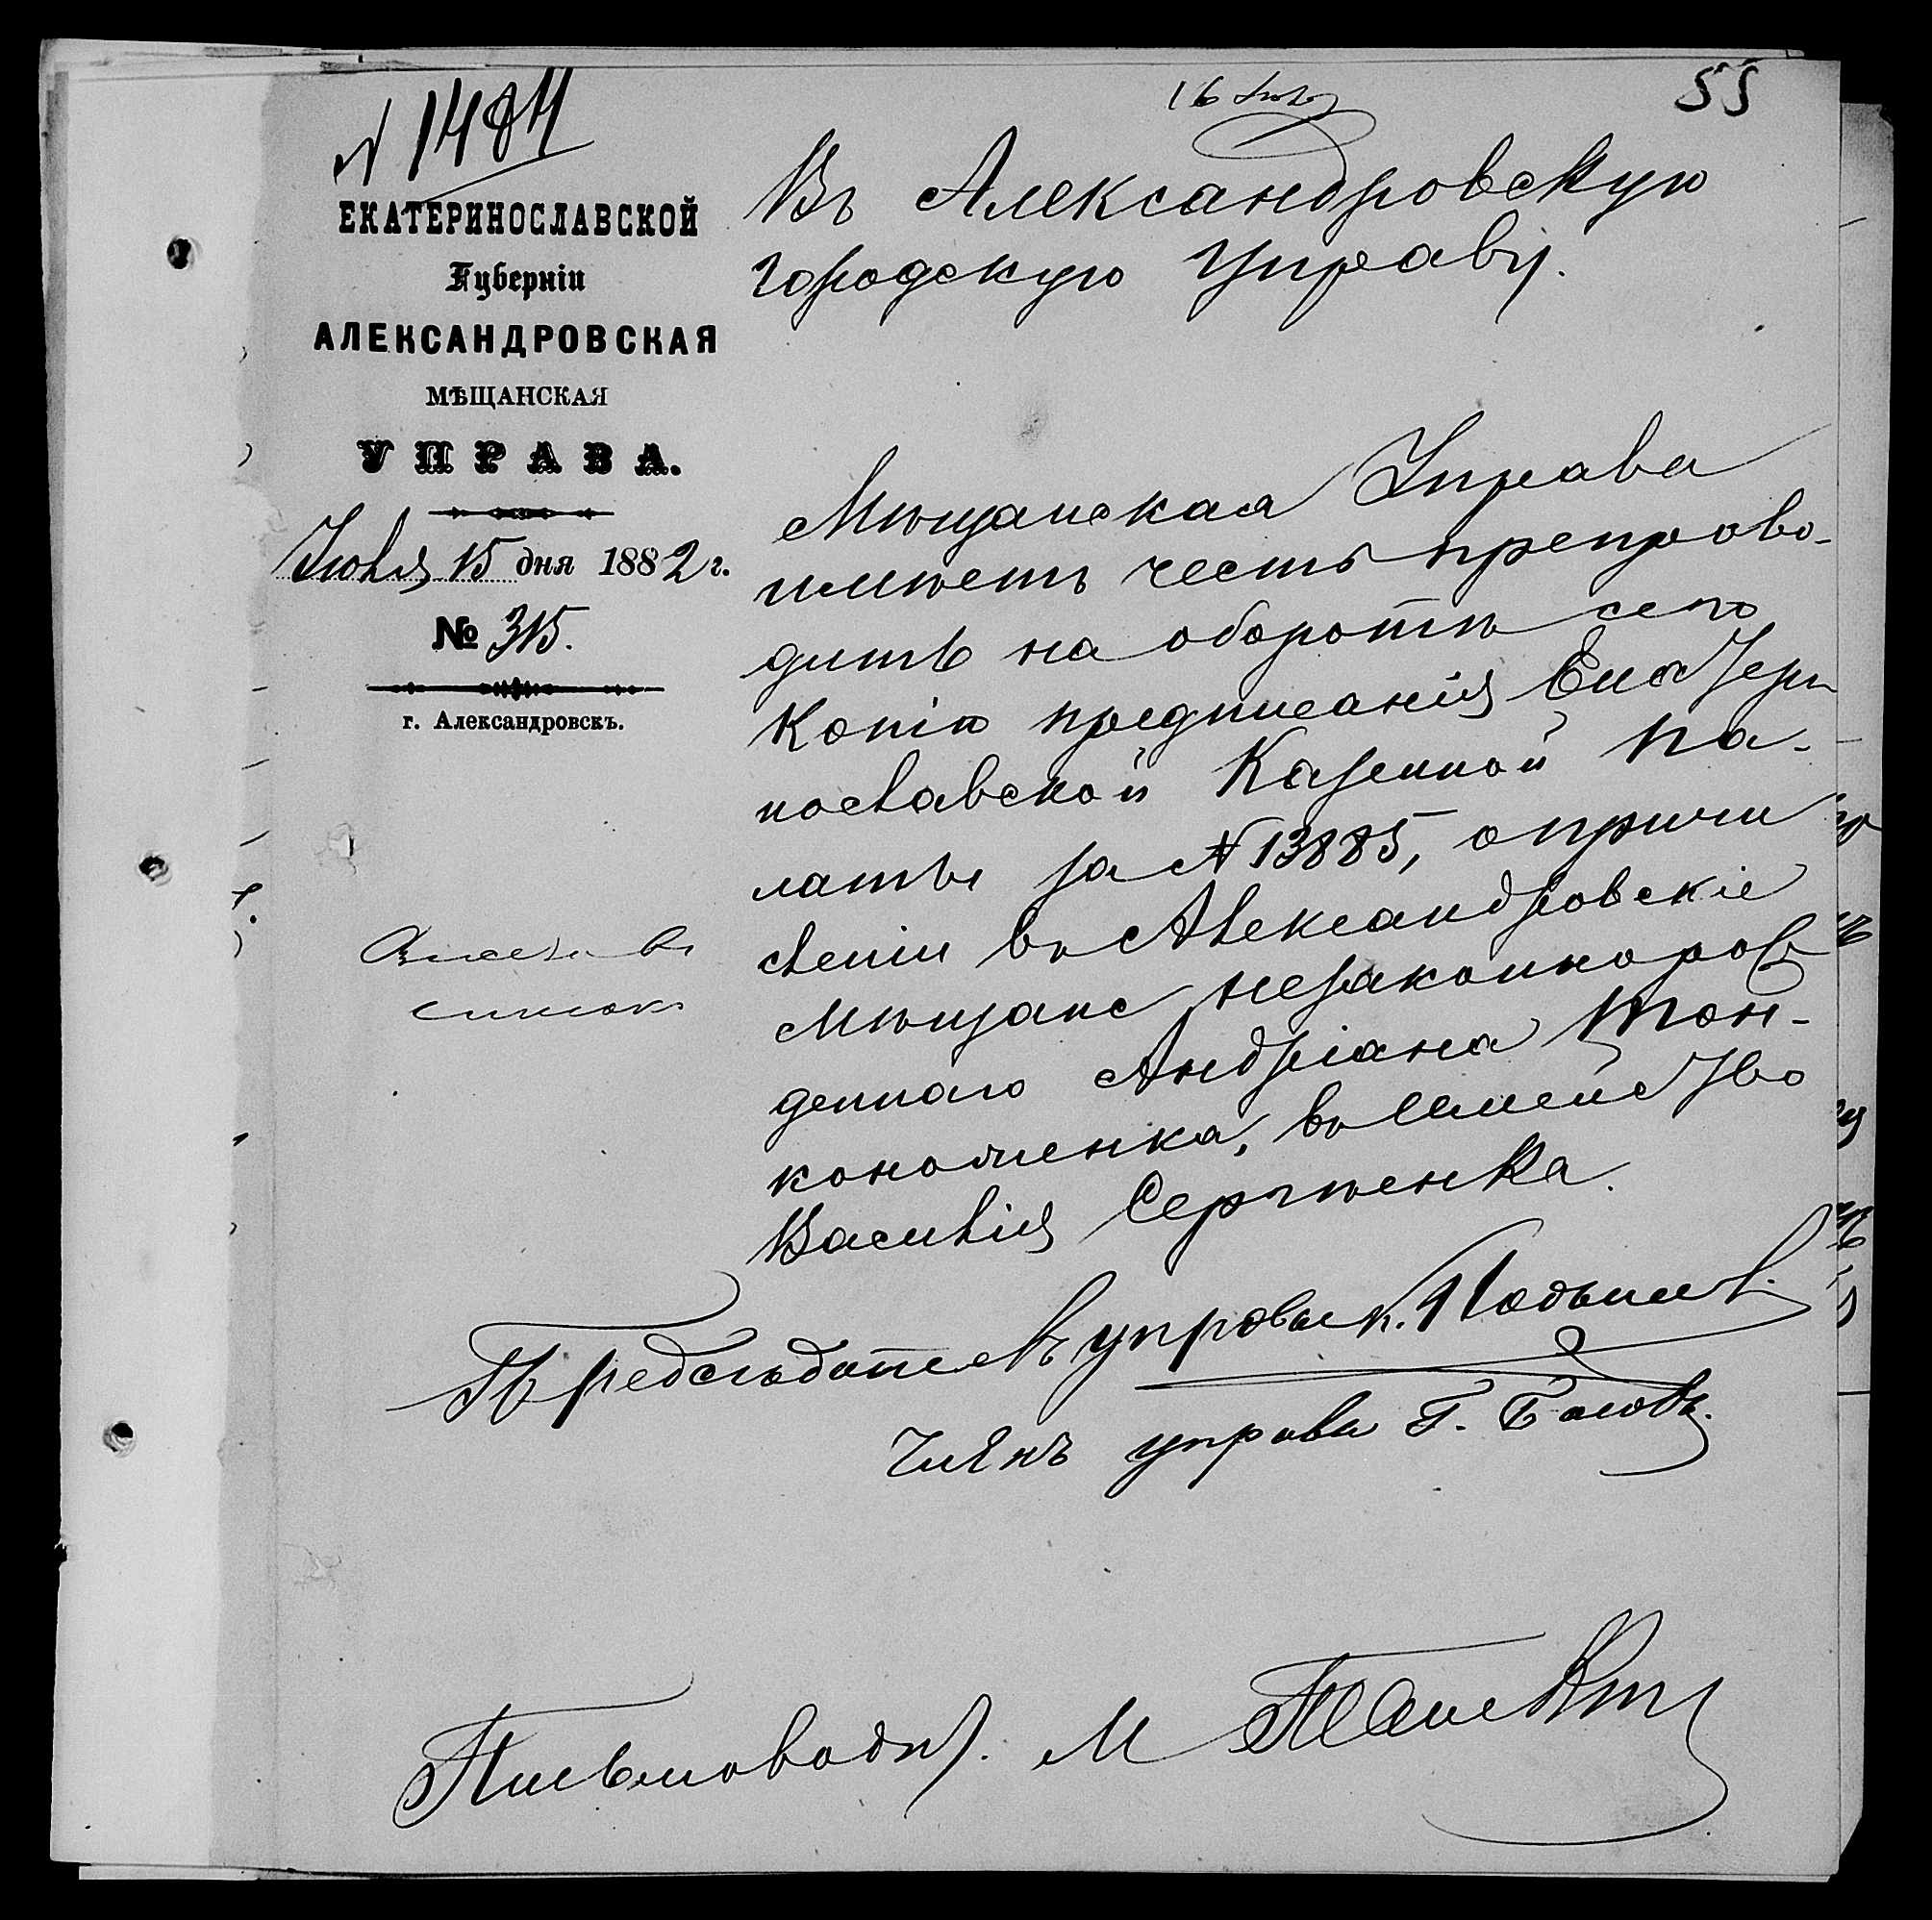 55
16 Июля
№ 1484
ЕКАТЕРИНОСЛАВСКОЙ
Губерніи
АЛЕКСАНДРОВСКАЯ
МѢЩАНСКАЯ
УПРАВА.
Июля 15 дня 1882 г.
№ 315.
г. Александровскъ.
Въ Александровскую
Городскую Управу.
Мѣщанская Управа
имѣетъ честь препрово-
дить на оборотѣ сего
копію предписанія Екатери
нославской Казенной Па-
латы за № 13885, о причи
сленіи въ Александровскіе
Мѣщане незаконнорож
деннаго Андріана Тон-
коноженка, въ семейство
Василія Сергѣенка.
въ
списокъ
Предсѣдатель управы к.
Членъ управы Г.
Письмоводит. М